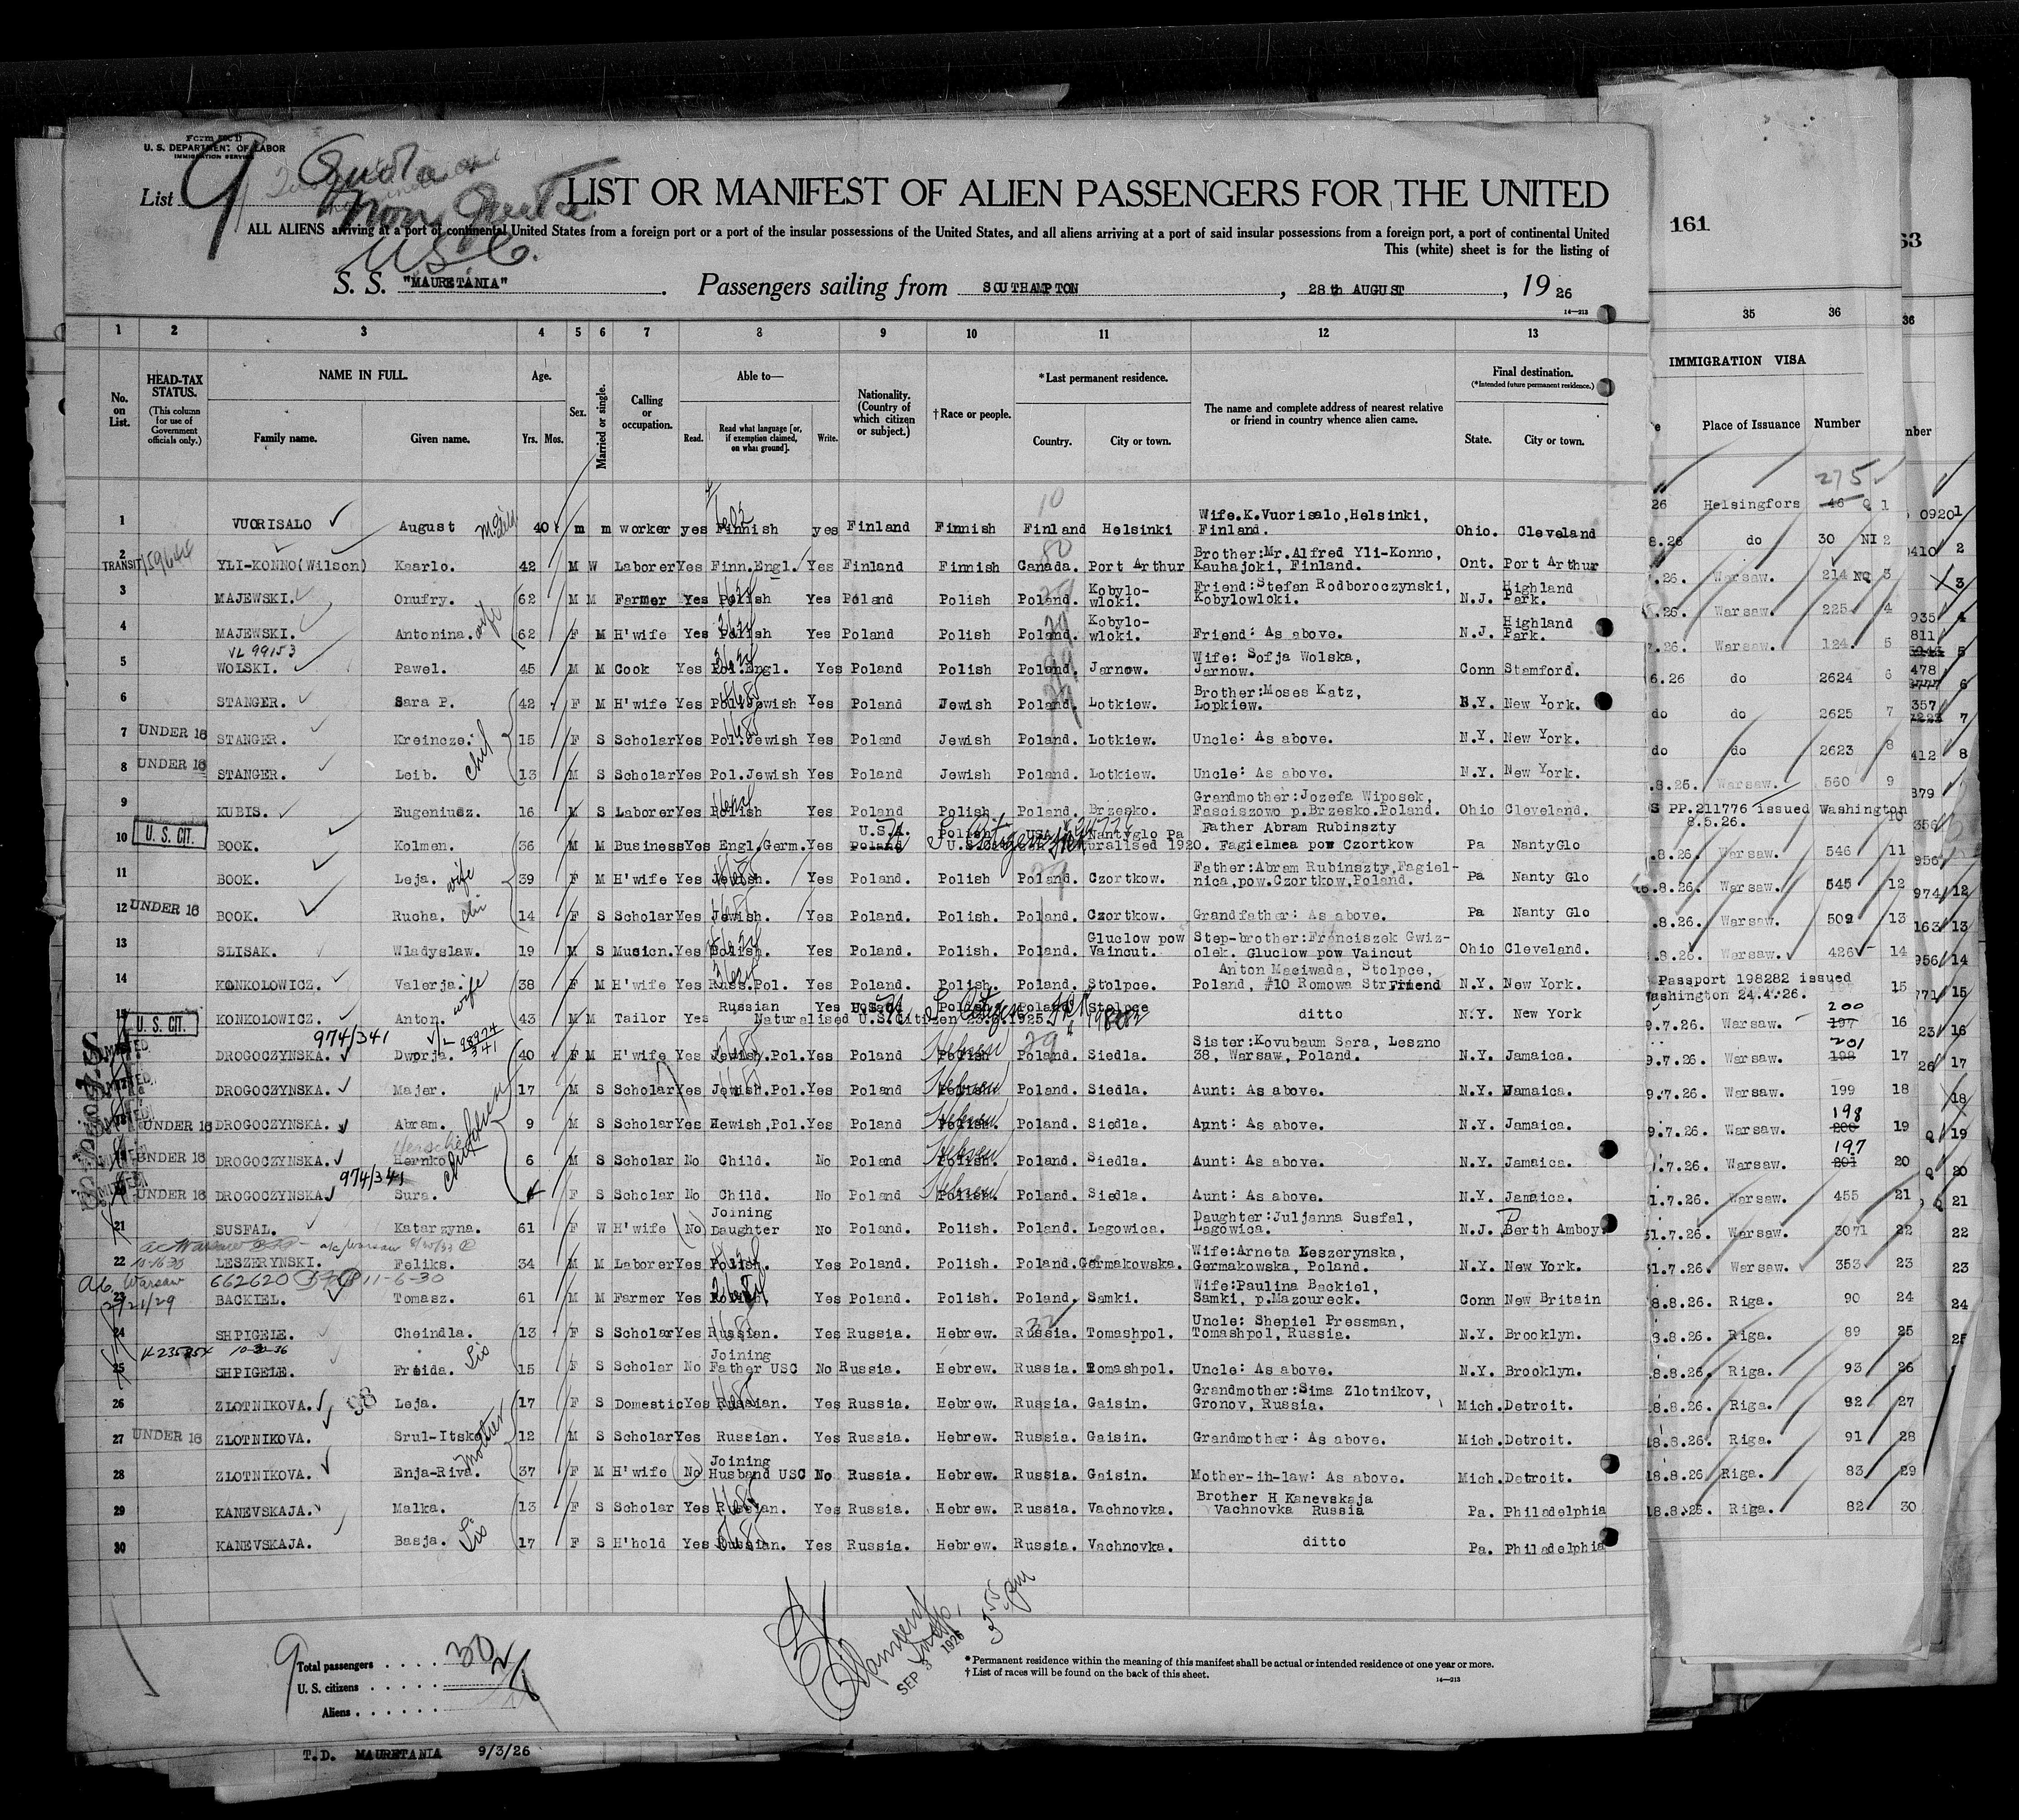 Form 500
U. S. DEPARTMENT OF LABOR
IMMIGRATION SERVICE
List 9
Quota
Non Quota
USC.
LIST OR MANIFEST OF ALIEN PASSENGERS FOR THE UNITED
ALL ALIENS arriving at a port of continental United States from a foreign port or a port of the insular possessions of the United States, and all aliens arriving at a port of said insular possessions from a foreign port, a port of continental United
This (white) sheet is for the listing of
S. S. "MAURETANIA". Passengers sailing from SOUTHAMPTON, 28th AUGUST, 1926
14—213
1 2 3 4 5 6 7 8 9 10 11 12 13
No. on List.
HEAD-TAX STATUS. (This column for use of Government officials only.)
NAME IN FULL.
Family name. Given name.
Age. Yrs. Mos.
Sex.
Married or single.
Calling or occupation.
Able to—
Read. Read what language [or, if exemption claimed, on what ground]. Write.
Nationality. (Country of which citizen or subject.)
†Race or people.
*Last permanent residence.
Country. City or town.
The name and complete address of nearest relative or friend in country whence alien came.
Final destination. (*Intended future permanent residence.)
State. City or town.
1 VUORISALO August 40 m m worker yes Finnish yes Finland Finnish Finland Helsinki Wife.K.Vuorisalo,Helsinki, Finland. Ohio. Cleveland
2 TRANSIT YLI-KONNO(Wilson) Kaarlo. 42 M W Laborer Yes Finn.Engl. Yes Finland Finnish Canada. Port Arthur Brother:Mr.Alfred Yli-Konno, Kauhajoki, Finland. Ont. Port Arthur
3 MAJEWSKI. Onufry. 62 M M Farmer Yes Polish Yes Poland Polish Poland. Kobylo-wloki. Friend:Stefan Rodboroczynski, Kobylowloki. N.J. Highland Park.
4 MAJEWSKI. Antonina. wife 62 F M H'wife Yes Polish Yes Poland Polish Poland. Kobylo-wloki. Friend: As above. N.J. Highland Park.
VL 99153
5 WOLSKI. Pawel. 45 M M Cook Yes Pol.Engl. Yes Poland Polish Poland. Jarnow. Wife: Sofja Wolska, Jarnow. Conn Stamford.
6 STANGER. Sara P. 42 F M H'wife Yes Pol.Jewish Yes Poland Jewish Poland. Lotkiew. Brother:Moses Katz, Lopkiew. N.Y. New York.
7 UNDER 16 STANGER. Kreincze. 15 F S Scholar Yes Pol.Jewish Yes Poland Jewish Poland. Lotkiew. Uncle: As above. N.Y. New York.
8 UNDER 16 STANGER. Leib. chil 13 M S Scholar Yes Pol.Jewish Yes Poland Jewish Poland. Lotkiew. Uncle: As above. N.Y. New York.
9 KUBIS. Eugeniusz. 16 M S Laborer Yes Polish Yes Poland Polish Poland. Brzesko. Grandmother:Jozefa Wiposek, Fasciszowo p.Brzesko.Poland. Ohio Cleveland.
10 U. S. CIT. BOOK. Kolmen. 36 M M Business Yes Engl.Germ. Yes U.S.A. Poland Polish USA Nantyglo Pa Naturalised 1920. Father Abram Rubinszty Fagielmea pow Czortkow Pa NantyGlo
11 BOOK. Leja. wife 39 F M H'wife Yes Jewish. Yes Poland. Polish Poland. Czortkow. Father:Abram Rubinszty,Fagiel-nica,pow.Czortkow,Poland. Pa Nanty Glo
12 UNDER 16 BOOK. Rucha. chi 14 F S Scholar Yes Jewish. Yes Poland. Polish. Poland. Czortkow. Grandfather: As above. Pa Nanty Glo
13 SLISAK. Wladyslaw. 19 M S Musicn. Yes Polish. Yes Poland. Polish. Poland. Gluclow pow Vaincut. Step-brother:Franciszek Gwiz-olek. Gluclow pow Vaincut Ohio Cleveland.
14 KONKOLOWICZ. Valerja. wife 38 F M H'wife Yes Russ.Pol. Yes Poland. Polish. Poland. Stolpce. Anton Maciwada, Stolpce, Poland, #10 Romowa Str Friend N.Y. New York.
15 U. S. CIT. KONKOLOWICZ. Anton. 43 M M Tailor Yes Russian Yes Poland Stolpce Naturalised U.S. Citizen 23.6.1925. 198282 ditto N.Y. New York
974/341
DROGOCZYNSKA. Dworja. 40 F M H'wife Yes Jewish.Pol. Yes Poland Polish Hebrew Poland. Siedla. Sister:Kovubaum Sara, Leszno 38, Warsaw, Poland. N.Y. Jamaica.
DROGOCZYNSKA. Majer. 17 M S Scholar Yes Jewish.Pol. Yes Poland Hebrew Poland. Siedla. Aunt: As above. N.Y. Jamaica.
UNDER 16 DROGOCZYNSKA. Abram. 9 M S Scholar Yes Jewish,Pol. Yes Poland Polish. Hebrew Poland. Siedla. Aunt: As above. N.Y. Jamaica.
UNDER 16 DROGOCZYNSKA. Hernko Herschel children 6 M S Scholar No Child. No Poland Polish. Hebrew Poland. Siedla. Aunt: As above. N.Y. Jamaica.
974/341
UNDER 16 DROGOCZYNSKA. Sura. 4 F S Scholar No Child. No Poland Polish. Hebrew Poland. Siedla. Aunt: As above. N.Y. Jamaica.
21 SUSFAL. Katarzyna. 61 F W H'wife (No) Joining Daughter No Poland. Polish. Poland. Lagowica. Daughter:Juljanna Susfal, Lagowica. N.J. Perth Amboy.
22 LESZERYNSKI. Feliks. 34 M M Laborer Yes Polish. Yes Poland. Polish. Poland. Germakowska. Wife:Arneta Leszerynska, Germakowska, Poland. N.Y. New York.
662620 11-6-30
a/c Warsaw 2/21/29
23 BACKIEL. Tomasz. 61 M M Farmer Yes Polish Yes Poland. Polish. Poland. Samki. Wife:Paulina Backiel, Samki, p.Mazoureck. Conn New Britain
24 SHPIGELE. Cheindla. 13 F S Scholar Yes Russian. Yes Russia. Hebrew. Russia. Tomashpol. Uncle: Shepiel Pressman, Tomashpol, Russia. N.Y. Brooklyn.
25 SHPIGELE. Freida. Sis 15 F S Scholar No Joining Father USC No Russia. Hebrew. Russia. Tomashpol. Uncle: As above. N.Y. Brooklyn.
26 ZLOTNIKOVA. 98 Leja. 17 F S Domestic Yes Russian. Yes Russia. Hebrew. Russia. Gaisin. Grandmother:Sima Zlotnikov, Gronov, Russia. Mich. Detroit.
27 UNDER 16 ZLOTNIKOVA. Srul-Itsko 12 M S Scholar Yes Russian. Yes Russia. Hebrew. Russia. Gaisin. Grandmother: As above. Mich. Detroit.
28 ZLOTNIKOVA. Enja-Riva. Mother 37 F M H'wife (No) Joining Husband USC No Russia. Hebrew. Russia. Gaisin. Mother-in-law: As above. Mich. Detroit.
29 KANEVSKAJA. Malka. 13 F S Scholar Yes Russian. Yes Russia. Hebrew. Russia. Vachnovka. Brother H Kanevskaja Vachnovka Russia Pa. Philadelphia
30 KANEVSKAJA. Basja. Sis 17 F S H'hold Yes Russian. Yes Russia. Hebrew. Russia. Vachnovka. ditto Pa. Philadelphia
9 Total passengers . . . . 30
U. S. citizens . . . . . 2
Aliens . . . . . .
SEP 3 1926
3 55 pm
* Permanent residence within the meaning of this manifest shall be actual or intended residence of one year or more.
† List of races will be found on the back of this sheet.
14—213
T.D. MAURETANIA 9/3/26
161
63
35 36
36
IMMIGRATION VISA
Place of Issuance Number
275
26 Helsingfors 46 Q 1
8.26 do 30 NI 2
.26. Warsaw. 214 NQ 3
.26. Warsaw. 225 4
7.26. Warsaw. 124. 5
6.26 do 2624 6
do do 2625 7
do do 2623 8
.8.26. Warsaw. 560 9
S PP.211776 issued Washington 8.5.26. 10
.8.26. Warsaw. 546 11
6.8.26. Warsaw. 545 12
.8.26. Warsaw. 509 13
.8.26. Warsaw. 426 14
Passport 198282 issued Washington 24.4.26. 15
9.7.26. Warsaw. 197 200 16
9.7.26. Warsaw. 198 201 17
9.7.26. Warsaw. 199 18
9.7.26. Warsaw. 200 198 19
.7.26. Warsaw. 201 197 20
1.7.26. Warsaw. 455 21
31.7.26. Warsaw. 3071 22
31.7.26. Warsaw. 353 23
8.8.26. Riga. 90 24
3.8.26. Riga. 89 25
8.8.26. Riga. 93 26
18.8.26. Riga. 92 27
18.8.26. Riga. 91 28
18.8.26 Riga. 83 29
18.8.26. Riga. 82 30